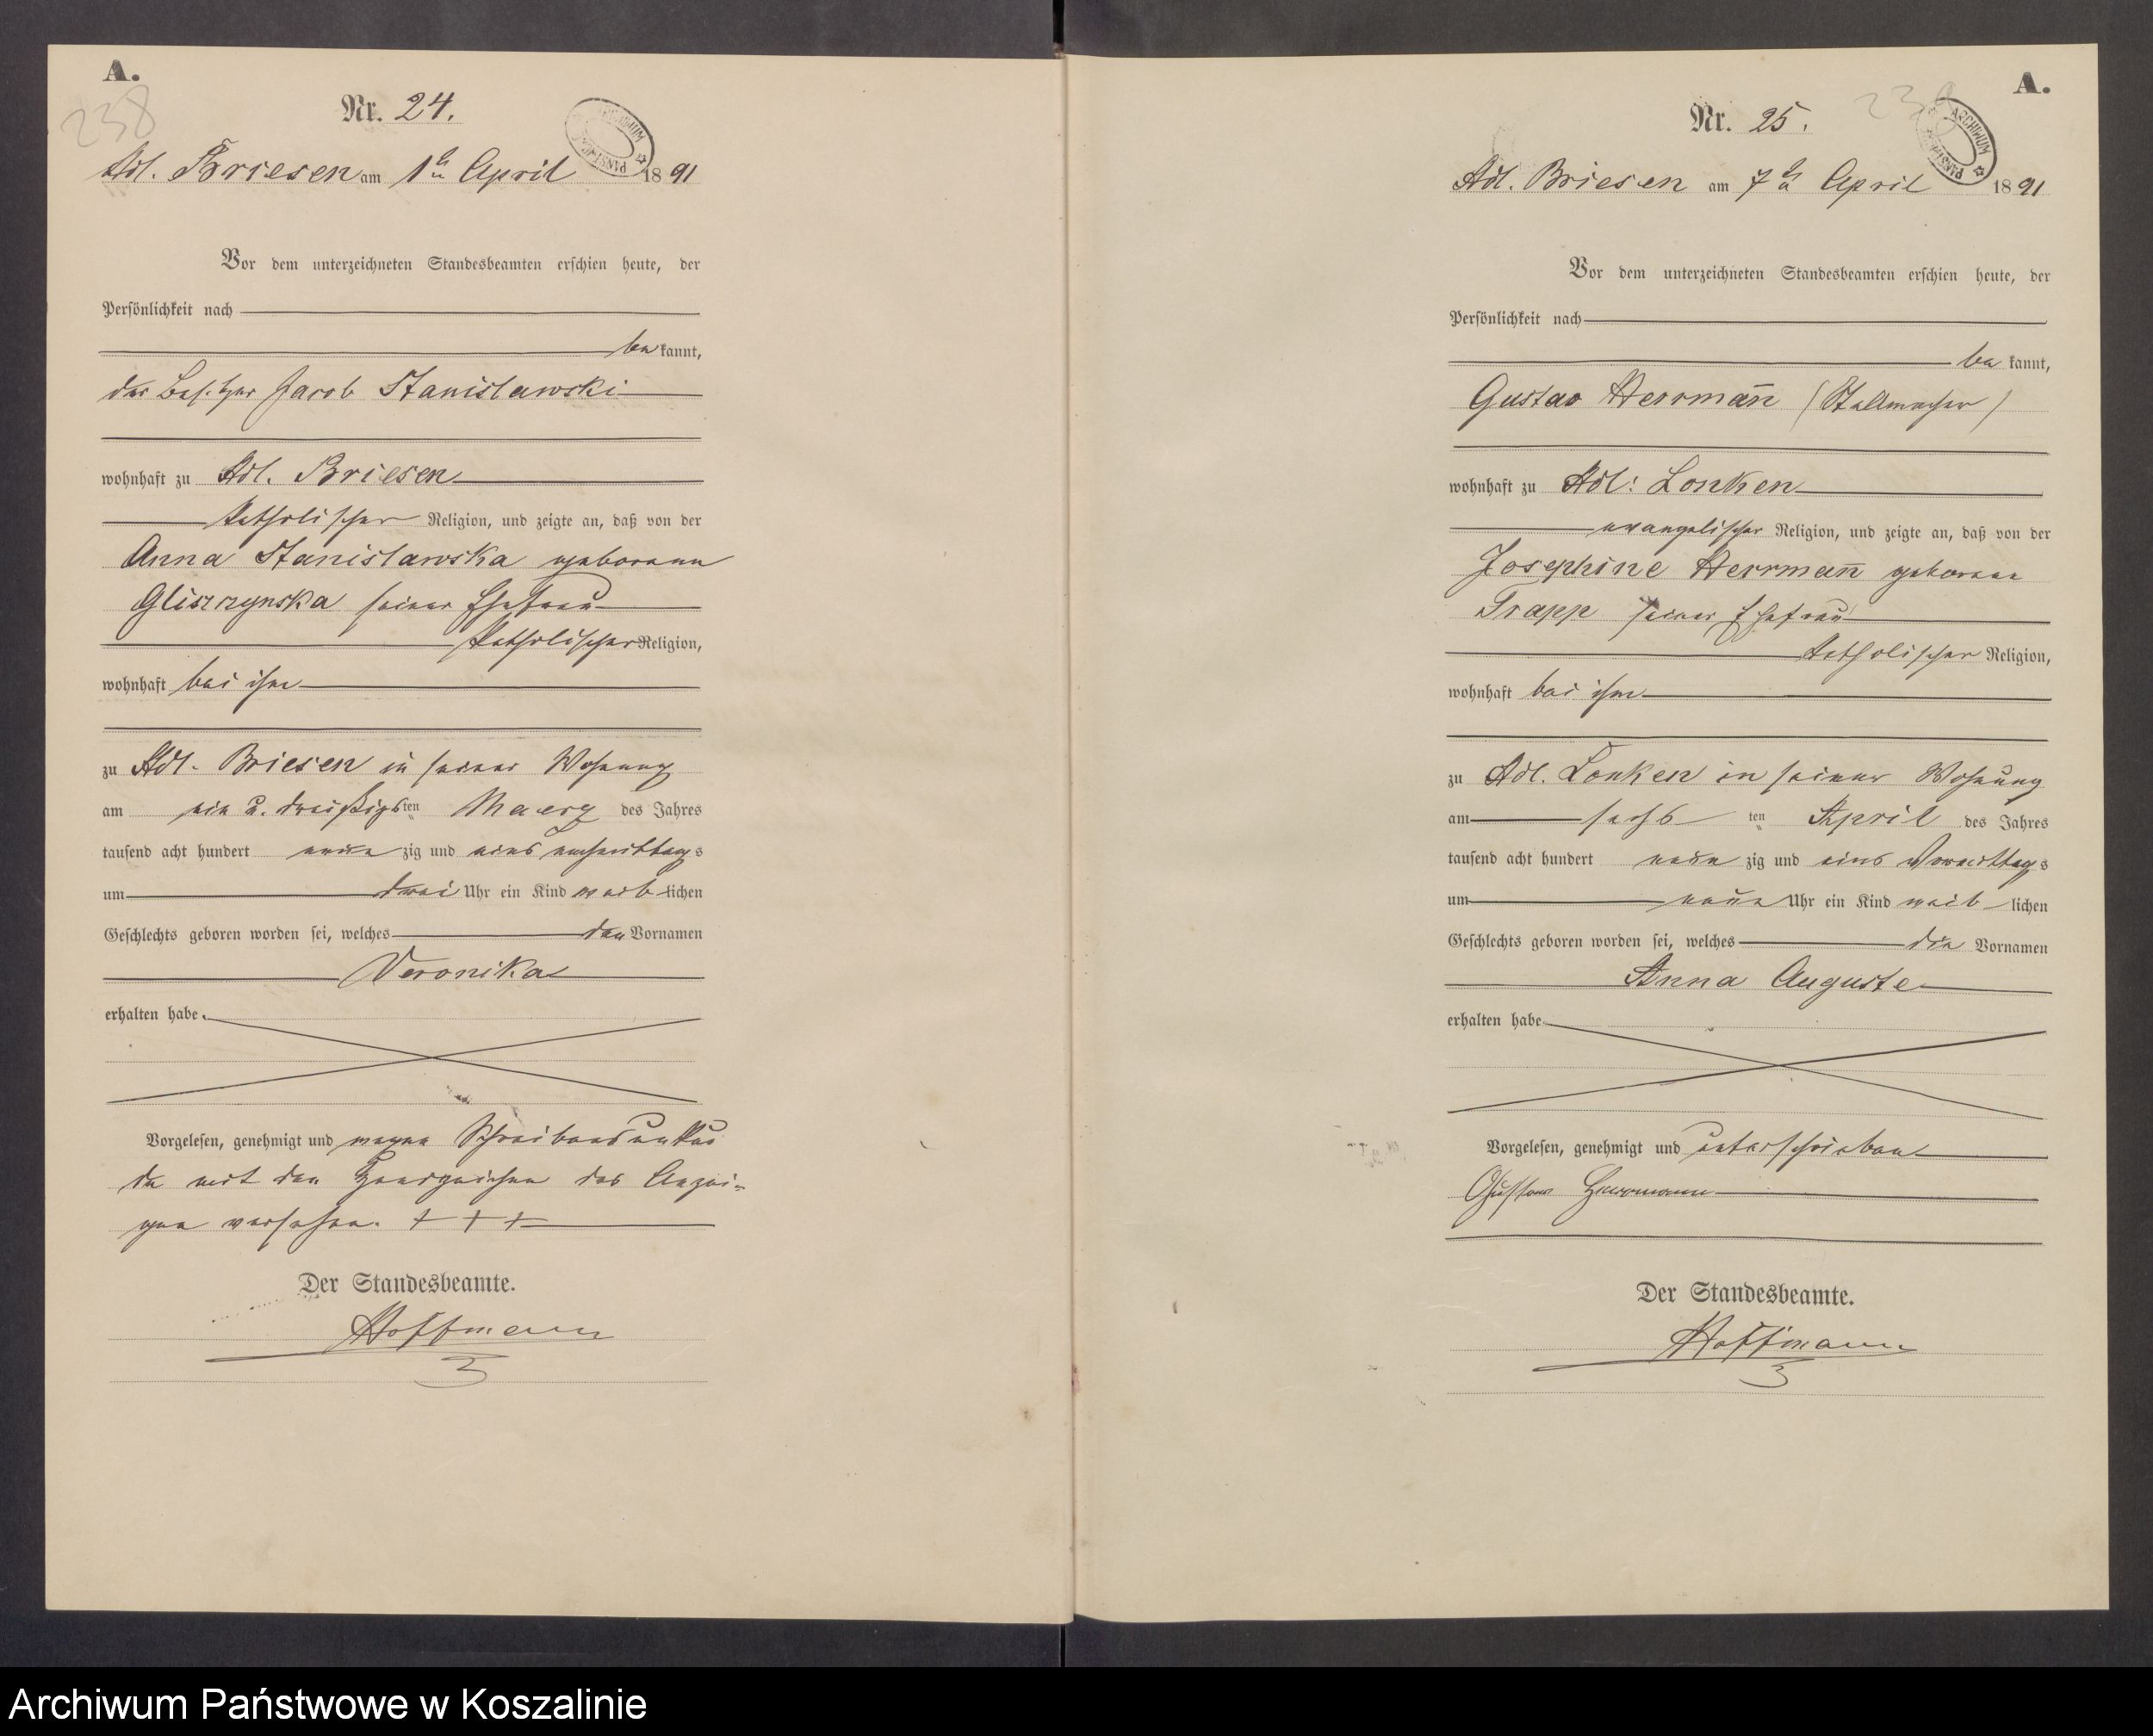 A.
238
Nr. 24.
ARCHIWUM PAŃSTW
Adl. Briesen am 1ten April 1891
Vor dem unterzeichneten Standesbeamten erschien heute, der
Persönlichkeit nach
bekannt,
der Besitzer Jacob Stanislawski
wohnhaft zu Adl. Briesen
katholischer Religion, und zeigte an, daß von der
Anna Stanislawska geborenen
Gliszczynska seiner Ehefrau
katholischer Religion,
wohnhaft bei ihm
zu Adl. Briesen in seiner Wohnung
am ein u. dreißigsten Maerz des Jahres
tausend acht hundert neunzig und eins nachmittags
um drei Uhr ein Kind weiblichen
Geschlechts geboren worden sei, welches den Vornamen
Veronika
erhalten habe.
Vorgelesen, genehmigt und wegen Schreibensunkun
de mit den Handzeichen des Anzei=
gen versehen. + + +
Der Standesbeamte.
Hoffmann
A.
239
Nr. 25.
ARCHIWUM PAŃSTW
Adl. Briesen am 7ten April 1891
Vor dem unterzeichneten Standesbeamten erschien heute, der
Persönlichkeit nach
bekannt,
Gustav Herrman̄ (Stellmacher)
wohnhaft zu Adl: Lonken
evangelischer Religion, und zeigte an, daß von der
Josephine Herrman̄ geborene
Trapp seiner Ehefrau
katholischer Religion,
wohnhaft bei ihm
zu Adl. Lonken in seiner Wohnung
am sechsten April des Jahres
tausend acht hundert neunzig und eins Vormittags
um neun Uhr ein Kind weiblichen
Geschlechts geboren worden sei, welches die Vornamen
Anna Auguste
erhalten habe
Vorgelesen, genehmigt und unterschrieben
Gustav Herrmann
Der Standesbeamte.
Hoffmann
Archiwum Państwowe w Koszalinie